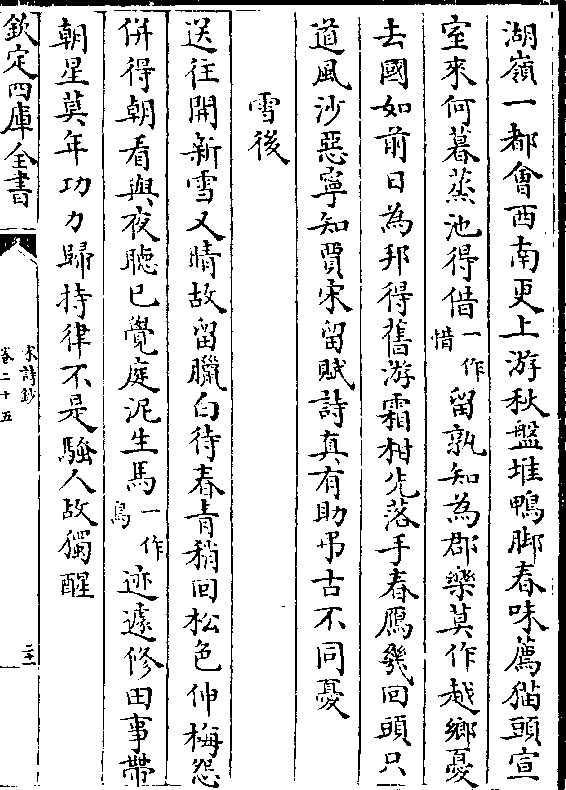 湖嶺一都會西南更上游秋盤堆鴨脚春味薦猫頭宣
室來何暮蒸池得借一作惜留孰知為郡樂莫作越鄉憂
去國如前日為邦得舊游霜柑先落手春鴈幾回頭只
道風沙惡寧知賈宋留賦詩真有助弔古不同憂
雪後
送往開新雪又晴故留臘白待春青稍回松色伸梅怨
併得朝看與夜聽已覺庭泥生馬一作鳥迹遽修田事帶
朝星莫年功力歸持律不是騷人故獨醒
欽定四庫全書
宋詩鈔
卷二十五